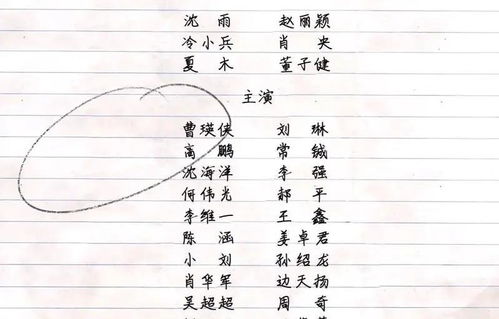 沈 雨 赵丽颖
冷小兵 肖 央
夏 木 董子健
主演
曹瑛侠 刘 琳
高 鹏 常 铖
沈海洋 李 强
何伟光 郝 平
李维一 王 鑫
陈 涵 姜卓君
小 刘 孙绍龙
肖华军 边天扬
吴超超 周 奇